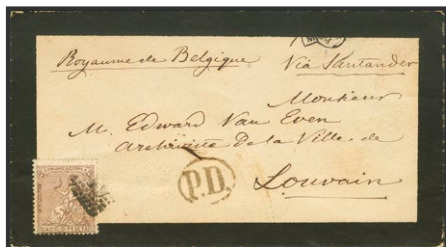 Royaume de Belgique
Via Santander
Monsieur
M. Edward Van Even
archiviste de la Ville de
Louvain
P.D.